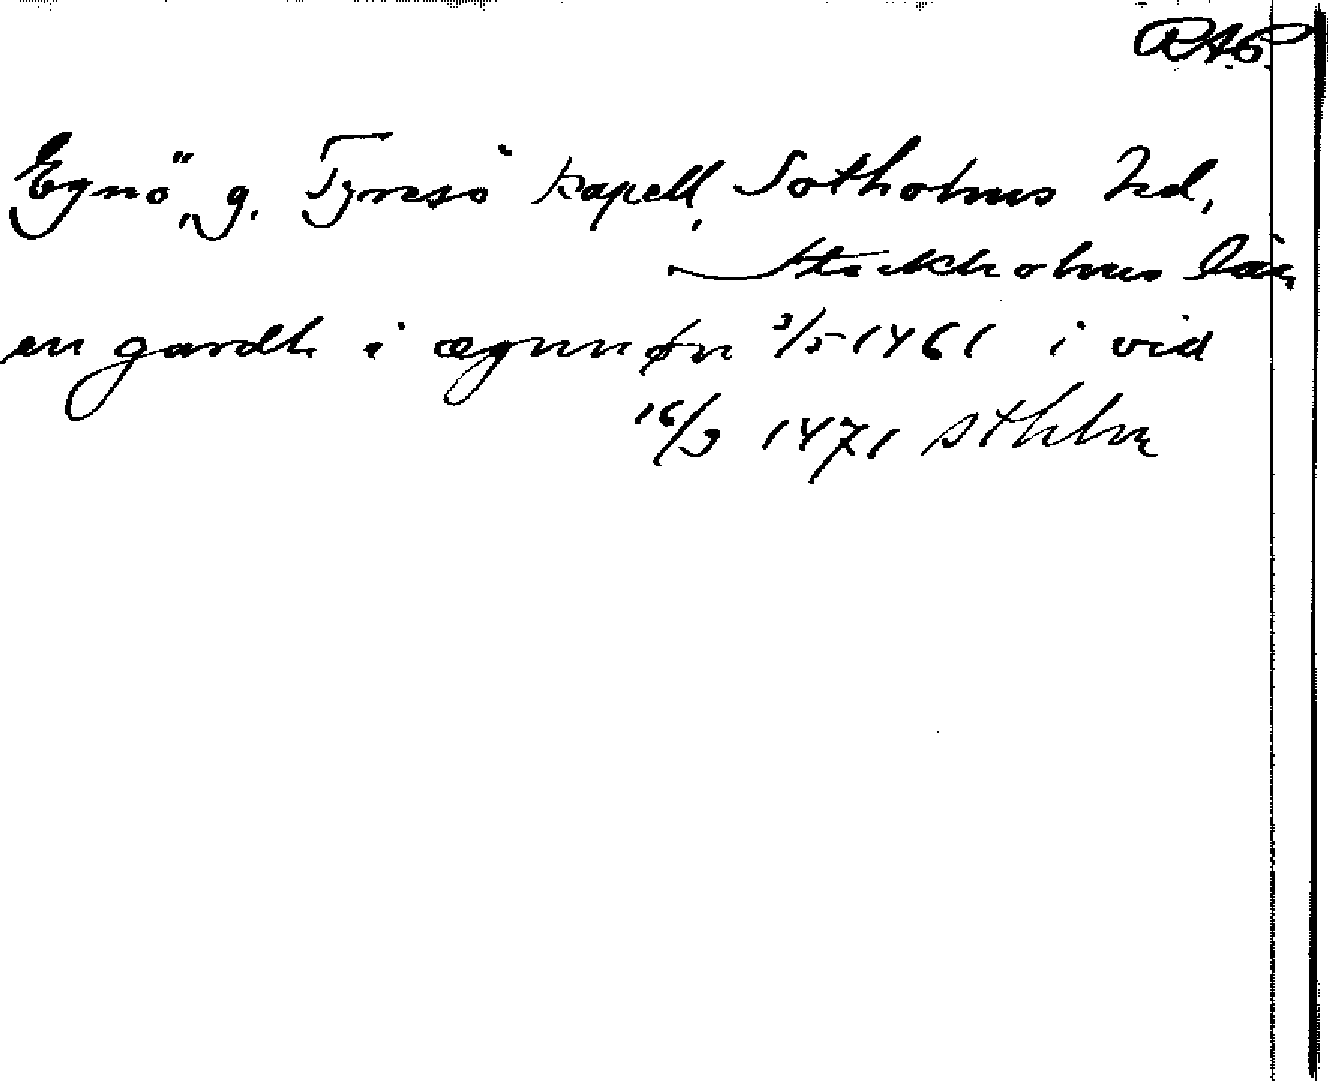 RAP
"Egnö", g. Tyresö kapell, Sotholms hd,
Stockholms län
en gardh i ægnnøn 3/5 1461 i vid
16/3 1471 Sthlm